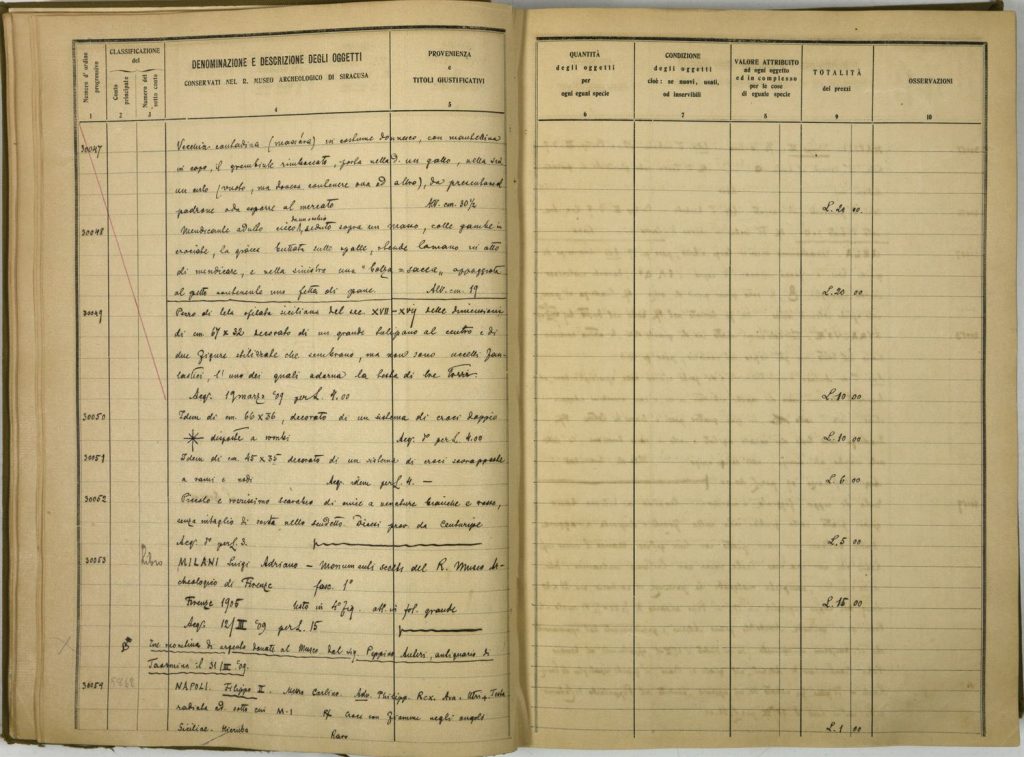 Numero d' ordine progressivo
CLASSIFICAZIONE del
Conto principale
Numero del sotto conto
DENOMINAZIONE E DESCRIZIONE DEGLI OGGETTI
CONSERVATI NEL R. MUSEO ARCHEOLOGICO DI SIRACUSA
PROVENIENZA
e
TITOLI GIUSTIFICATIVI
1 2 3 4 5
30047 Vecchia contadina (massára) in costume donnesco, con mantellina
in capo, il grembiule rimboccato, porta nella d. un gallo, nella sin.
un cesto (vuoto, ma doveva contenere ova od altro), da presentare al
padrone o da esporre al mercato Alt. cm. 30½
30048 Mendicante adulto cieco da un occhio, seduto sopra un masso, colle gambe in
crociate, la giacca buttata sulle spalle, stende la mano in atto
di mendicare, e nella sinistra una " = sacca „ appoggiata
al petto contenente una fetta di pane. Alt. cm. 19
30049 Pezzo di tela sfilata siciliana del sec. XVII-XVIII delle dimensioni
di cm 67 x 32 decorato di un grande tulipano al centro e di
due figure stilizzate che sembrano, ma non sono uccelli fan-
tastici, l' uno dei quali adorna la testa di tre torri
Acq. 19 marzo '09 per L. 4.00
30050 Idem di cm. 66 x 36, decorato di un sistema di croci doppio
disposte a rombi Acq. Id per L. 4.00
30051 Idem di cm. 45 x 35 decorato di un sistema di croci sovrapposte
a rami e nodi Acq. idem per L. 4. —
30052 Piccolo e rozzissimo scarabeo di onice a venature bianche e rosse,
senza intaglio di sorta nello scudetto. Dicesi prov. da Centuripe
Acq. Id per L. 3.
30053 Libro MILANI Luigi Adriano — Monumenti scelti del R. Museo Ar-
cheologico di Firenze fasc. 1º
Firenze 1905 testo in 4º fig. atl. in fol. grande
Acq. 12/III '09 per L. 15
Tre monetine di argento donate al Museo dal sig. Peppino Auteri, antiquario di
Taormina il 31/III '09.
30054 NAPOLI. Filippo II. Mezzo Carlino. Adv. Philipp. Rex. Ara. Utri. Testa
radiata ad sotto cui M-I R. Croce con fiamme negli angoli
Siciliae. Hierusa Raro
QUANTITÀ
degli oggetti
per
ogni eguai specie
CONDIZIONE
degli oggetti
cioè: se nuovi, usati,
od inservibili
VALORE ATTRIBUITO
ad ogni oggetto
ed in complesso
per le cose
di eguale specie
TOTALITÀ
dei prezzi
OSSERVAZIONI
6 7 8 9 10
L. 20 00
L. 20 00
L. 10 00
L. 10 00
L. 6 00
L. 5 00
L. 15 00
L. 1 00